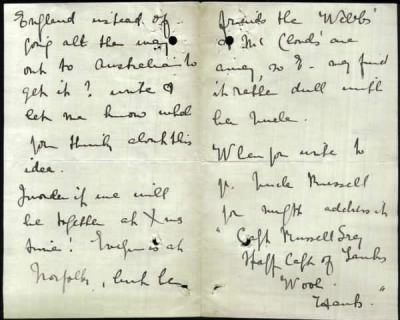 England instead of
going all the way
out to Australia to
get it? write &
let me know what
you think about this
idea.
I wonder if we will
be together at Xmas
time! Evelyn is at
Norfolk, but her
friends the 'Webbs'
& McClouds are
away, so E. may find
it rather dull until
her Uncle.
When you write to
yr. Uncle Russell
you might address it
"Capt Russell Grey
Staff Capt of Tanks
Wool.
Hants."